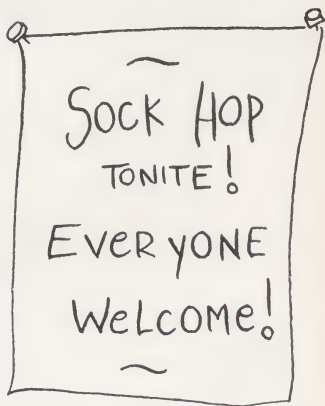 SOCK HOP
TONITE!
EVERYONE
WELCOME!